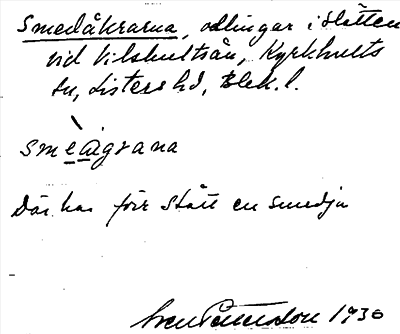 Smedåkrarna, odlingar i slätten
vid Vilshultsån, Kyrkhults
sn, Listers hd, Blek. l.
smeágrana
Där har förr stått en smedja
Sven 1930